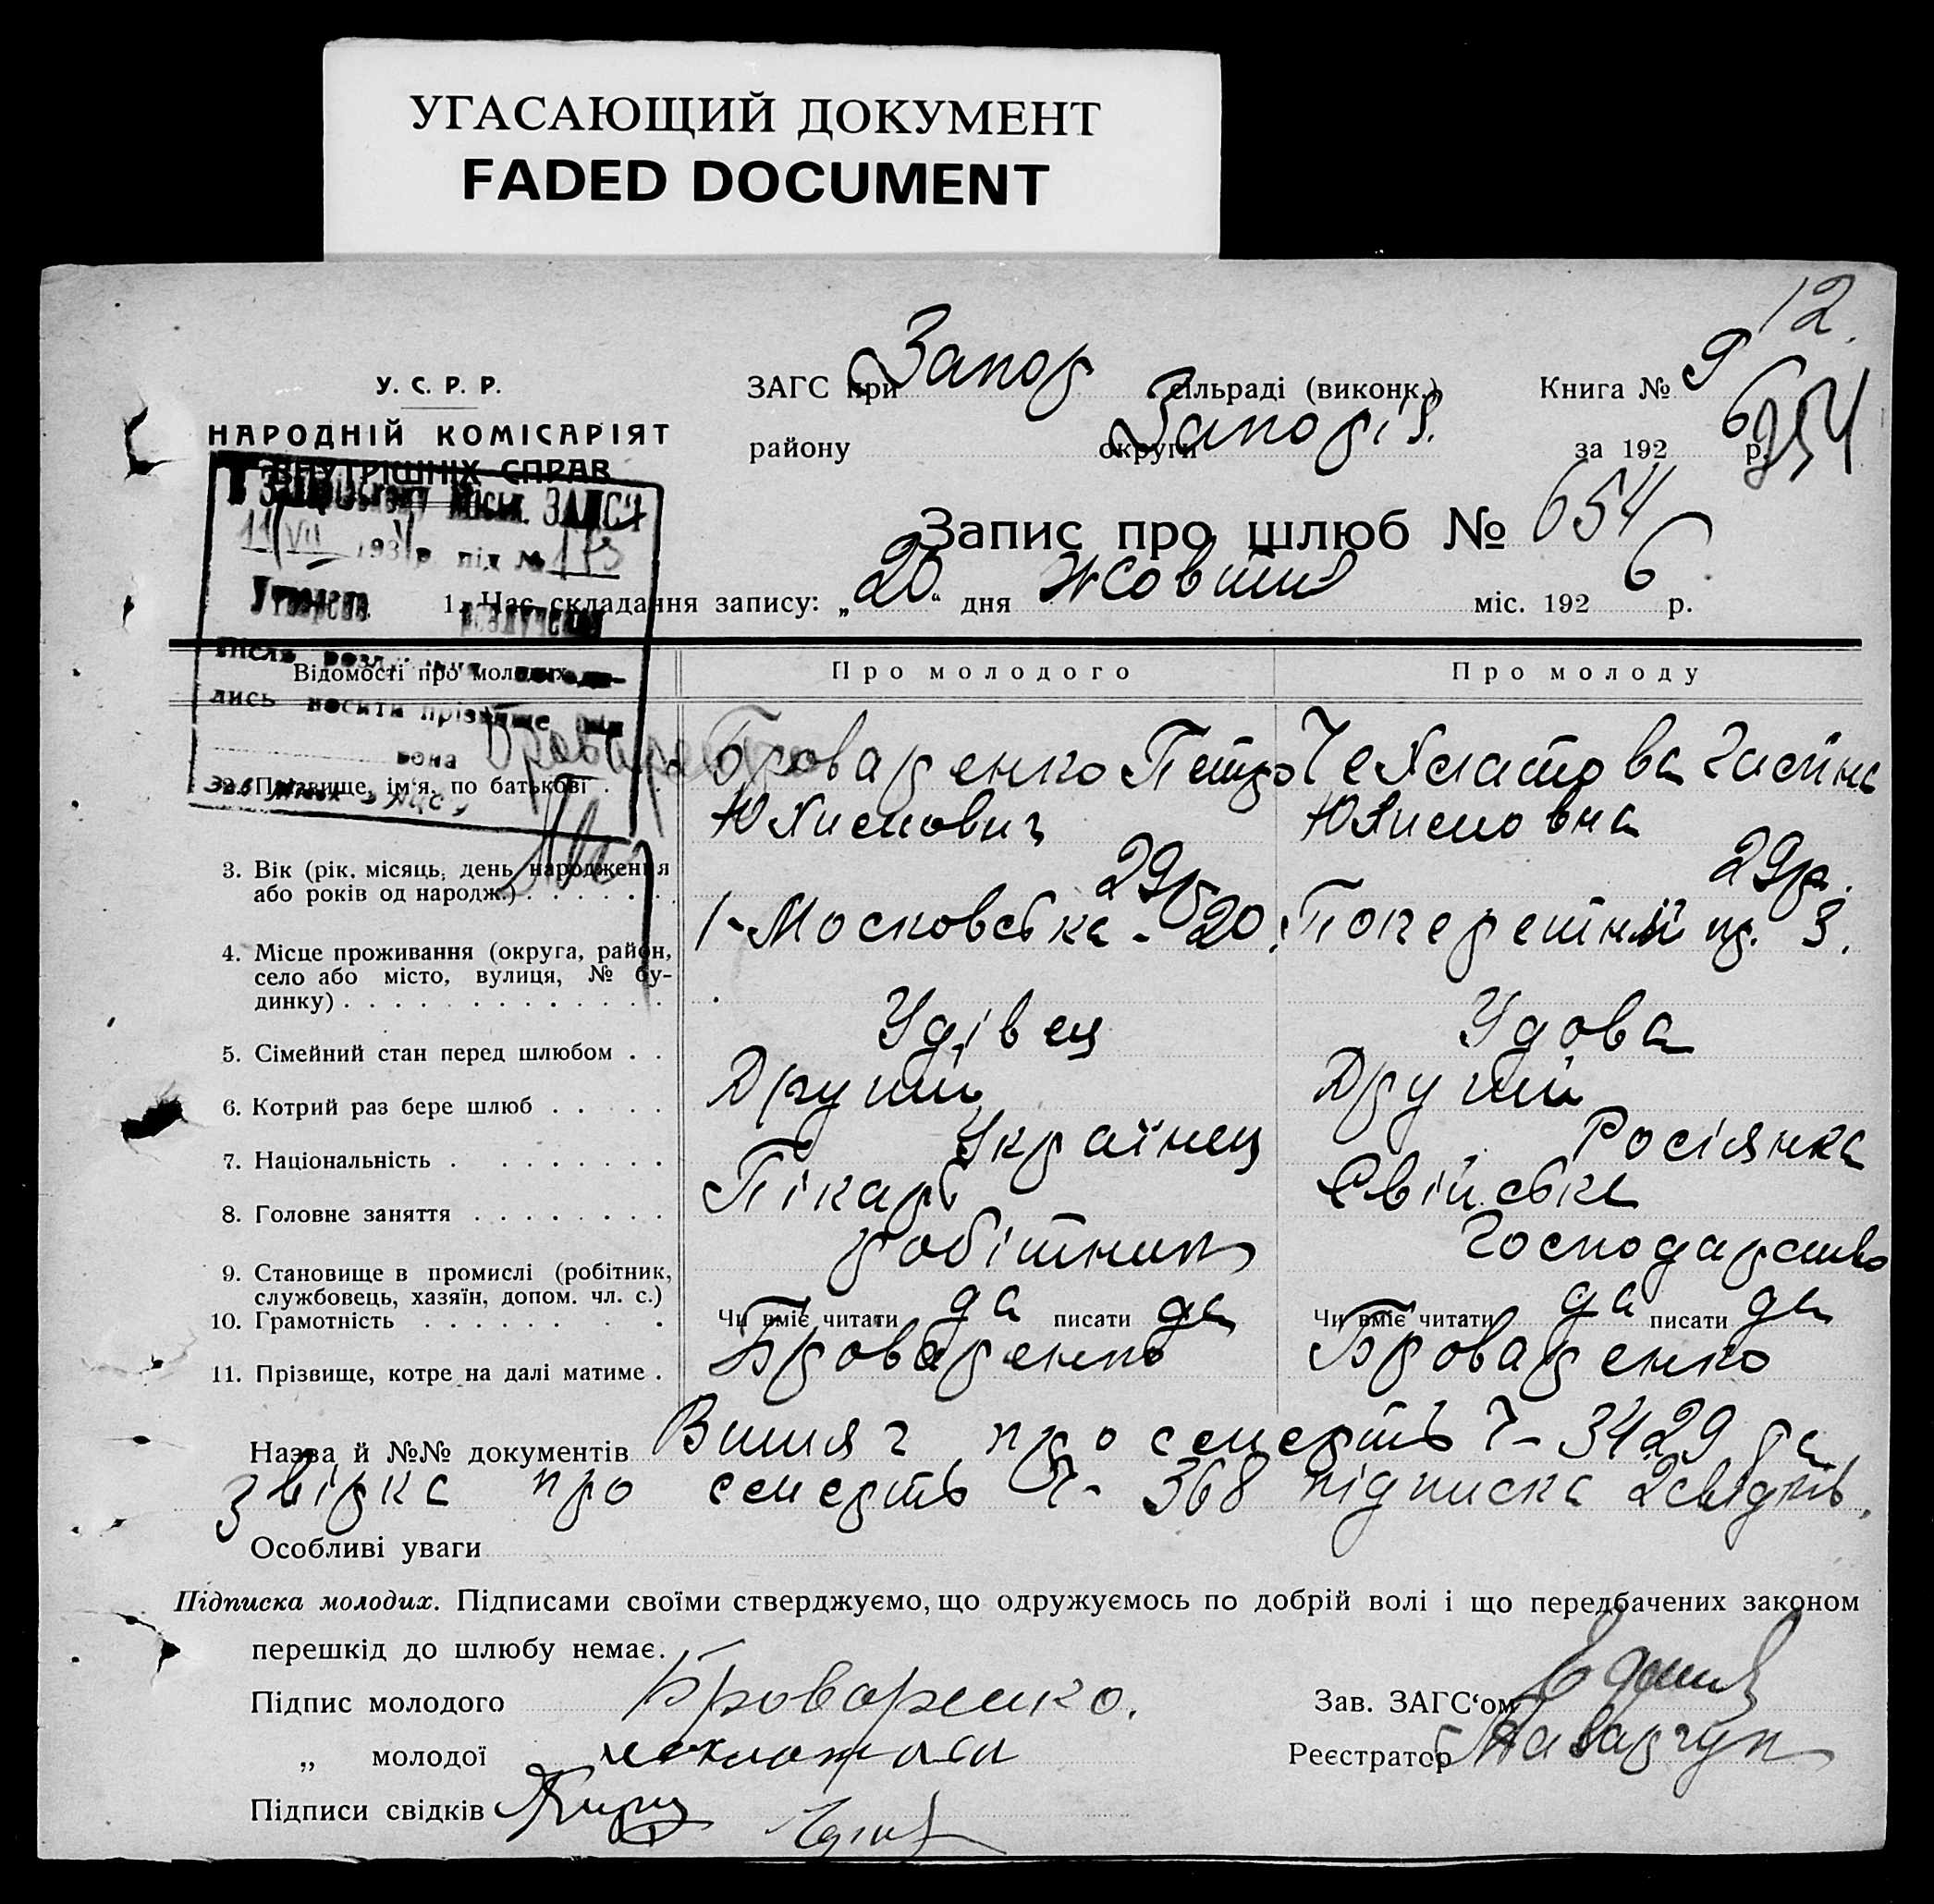 УГАСАЮЩИЙ ДОКУМЕНТ
FADED DOCUMENT
12.
У. С. Р. Р.
НАРОДНІЙ КОМІСАРІЯТ
ВНУТРІШНІХ СПРАВ
ЗАГС при Запор сільраді (виконк.) Книга № 9
району округи Запоріз. за 192 6 р.
654
Запис про шлюб № 654
11/VII 1931 р. під № 173
Утворено розлучення
після розлучення
лись носити прізвище
вона Броваренко
1. Час складання запису: „20“ дня Жовтня міс. 192 6 р.
Відомості про молодих Про молодого Про молоду
2. Прізвище, ім'я, по батькові . . Броваренко Петро Чехматова Галина
Юхимович Юхимовна
3. Вік (рік, місяць, день народження 29р 29р.
або років од народж.) . . . . . . .
4. Місце проживання (округа, район, 1-Московська - 20. Поперечний пр. 3.
село або місто, вулиця, № бу-
динку) . . . . . . . . . . . . .
5. Сімейний стан перед шлюбом . . Удівец Удова
6. Котрий раз бере шлюб . . . . . Другий Другий
7. Національність . . . . . . . . Українец Росіянка
8. Головне заняття . . . . . . . . Пікарь Свійське
9. Становище в промислі (робітник, робітник Господарство
службовець, хазяїн, допом. чл. с.)
10. Грамотність . . . . . . . . Чи вміє читати да писати да Чи вміє читати да писати да
11. Прізвище, котре на далі матиме . Броваренко Броваренко
Назва й №№ документів Витяг про смерть Ч- 3429 да
звірка про смерть Ч- 368 підписка 2 свідків.
Особливі уваги
Підписка молодих. Підписами своїми стверджуємо, що одружуємось по добрій волі і що передбачених законом
перешкід до шлюбу немає.
Підпис молодого Броваренко. Зав. ЗАГС'ом
„ молодої Реєстратор
Підписи свідків